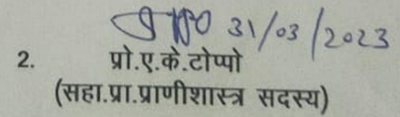 31/03/2023
2. प्रो.ए.के.टोप्पो
(सहा.प्रा.प्राणीशास्त्र सदस्य)